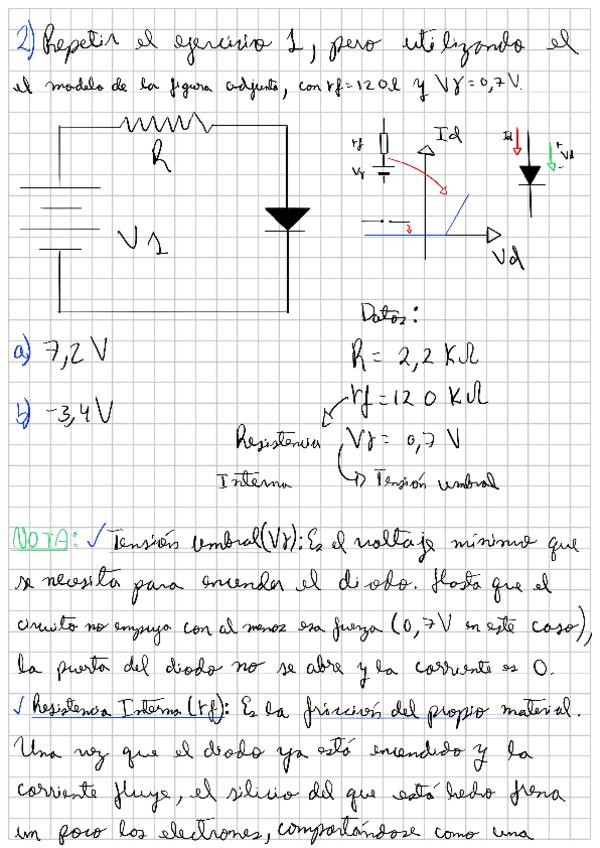 2) Repetir el ejercicio 1, pero utilizando el
el modelo de la figura adjunta, con rf=120Ω y Vγ=0,7V.
R
V1
rf
Vγ
Id
Vd
Id
+
Vd
-
Datos:
a) 7,2 V
R = 2,2 KΩ
b) -3,4 V
rf = 120 KΩ
Resistencia
Vγ = 0,7 V
Interna
Tensión umbral
NOTA: ✓ Tensión umbral (Vγ): Es el voltaje mínimo que
se necesita para encender el diodo. Hasta que el
circuito no empuja con al menos esa fuerza (0,7V en este caso),
la puerta del diodo no se abre y la corriente es 0.
✓ Resistencia Interna (rf): Es la fricción del propio material.
Una vez que el diodo ya está encendido y la
corriente fluye, el silicio del que está hecho frena
un poco los electrones, comportándose como una